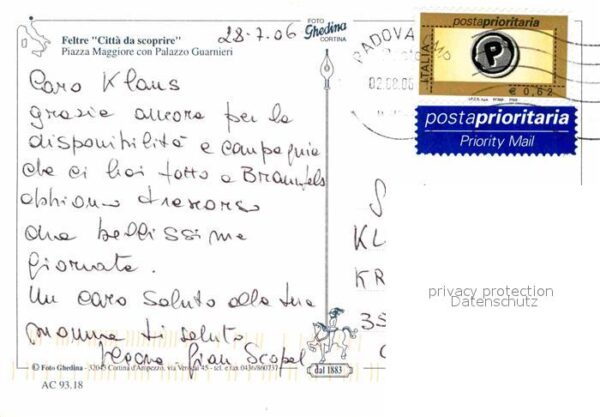 Feltre "Città da scoprire"
Piazza Maggiore con Palazzo Guarnieri
28-7.06
FOTO
Ghedina
CORTINA
Caro Klaus
grazie ancora per la
disponibilità e compagnia
che ci hai fatto a Braunfels
abbiamo trascorso
una bellissima
giornata.
Un caro saluto alla tua
mamma ti salut.
Gian Scopel
© Foto Ghedina - 32043 Cortina d'Ampezzo, via Verocai 45 - tel. e fax 0436/860737
AC 93.18
dal 1883
PADOVA
02.08.06
postaprioritaria
ITALIA
P
€ 0,62
postaprioritaria
Priority Mail
S
KL
KR
35
privacy protection
Datenschutz